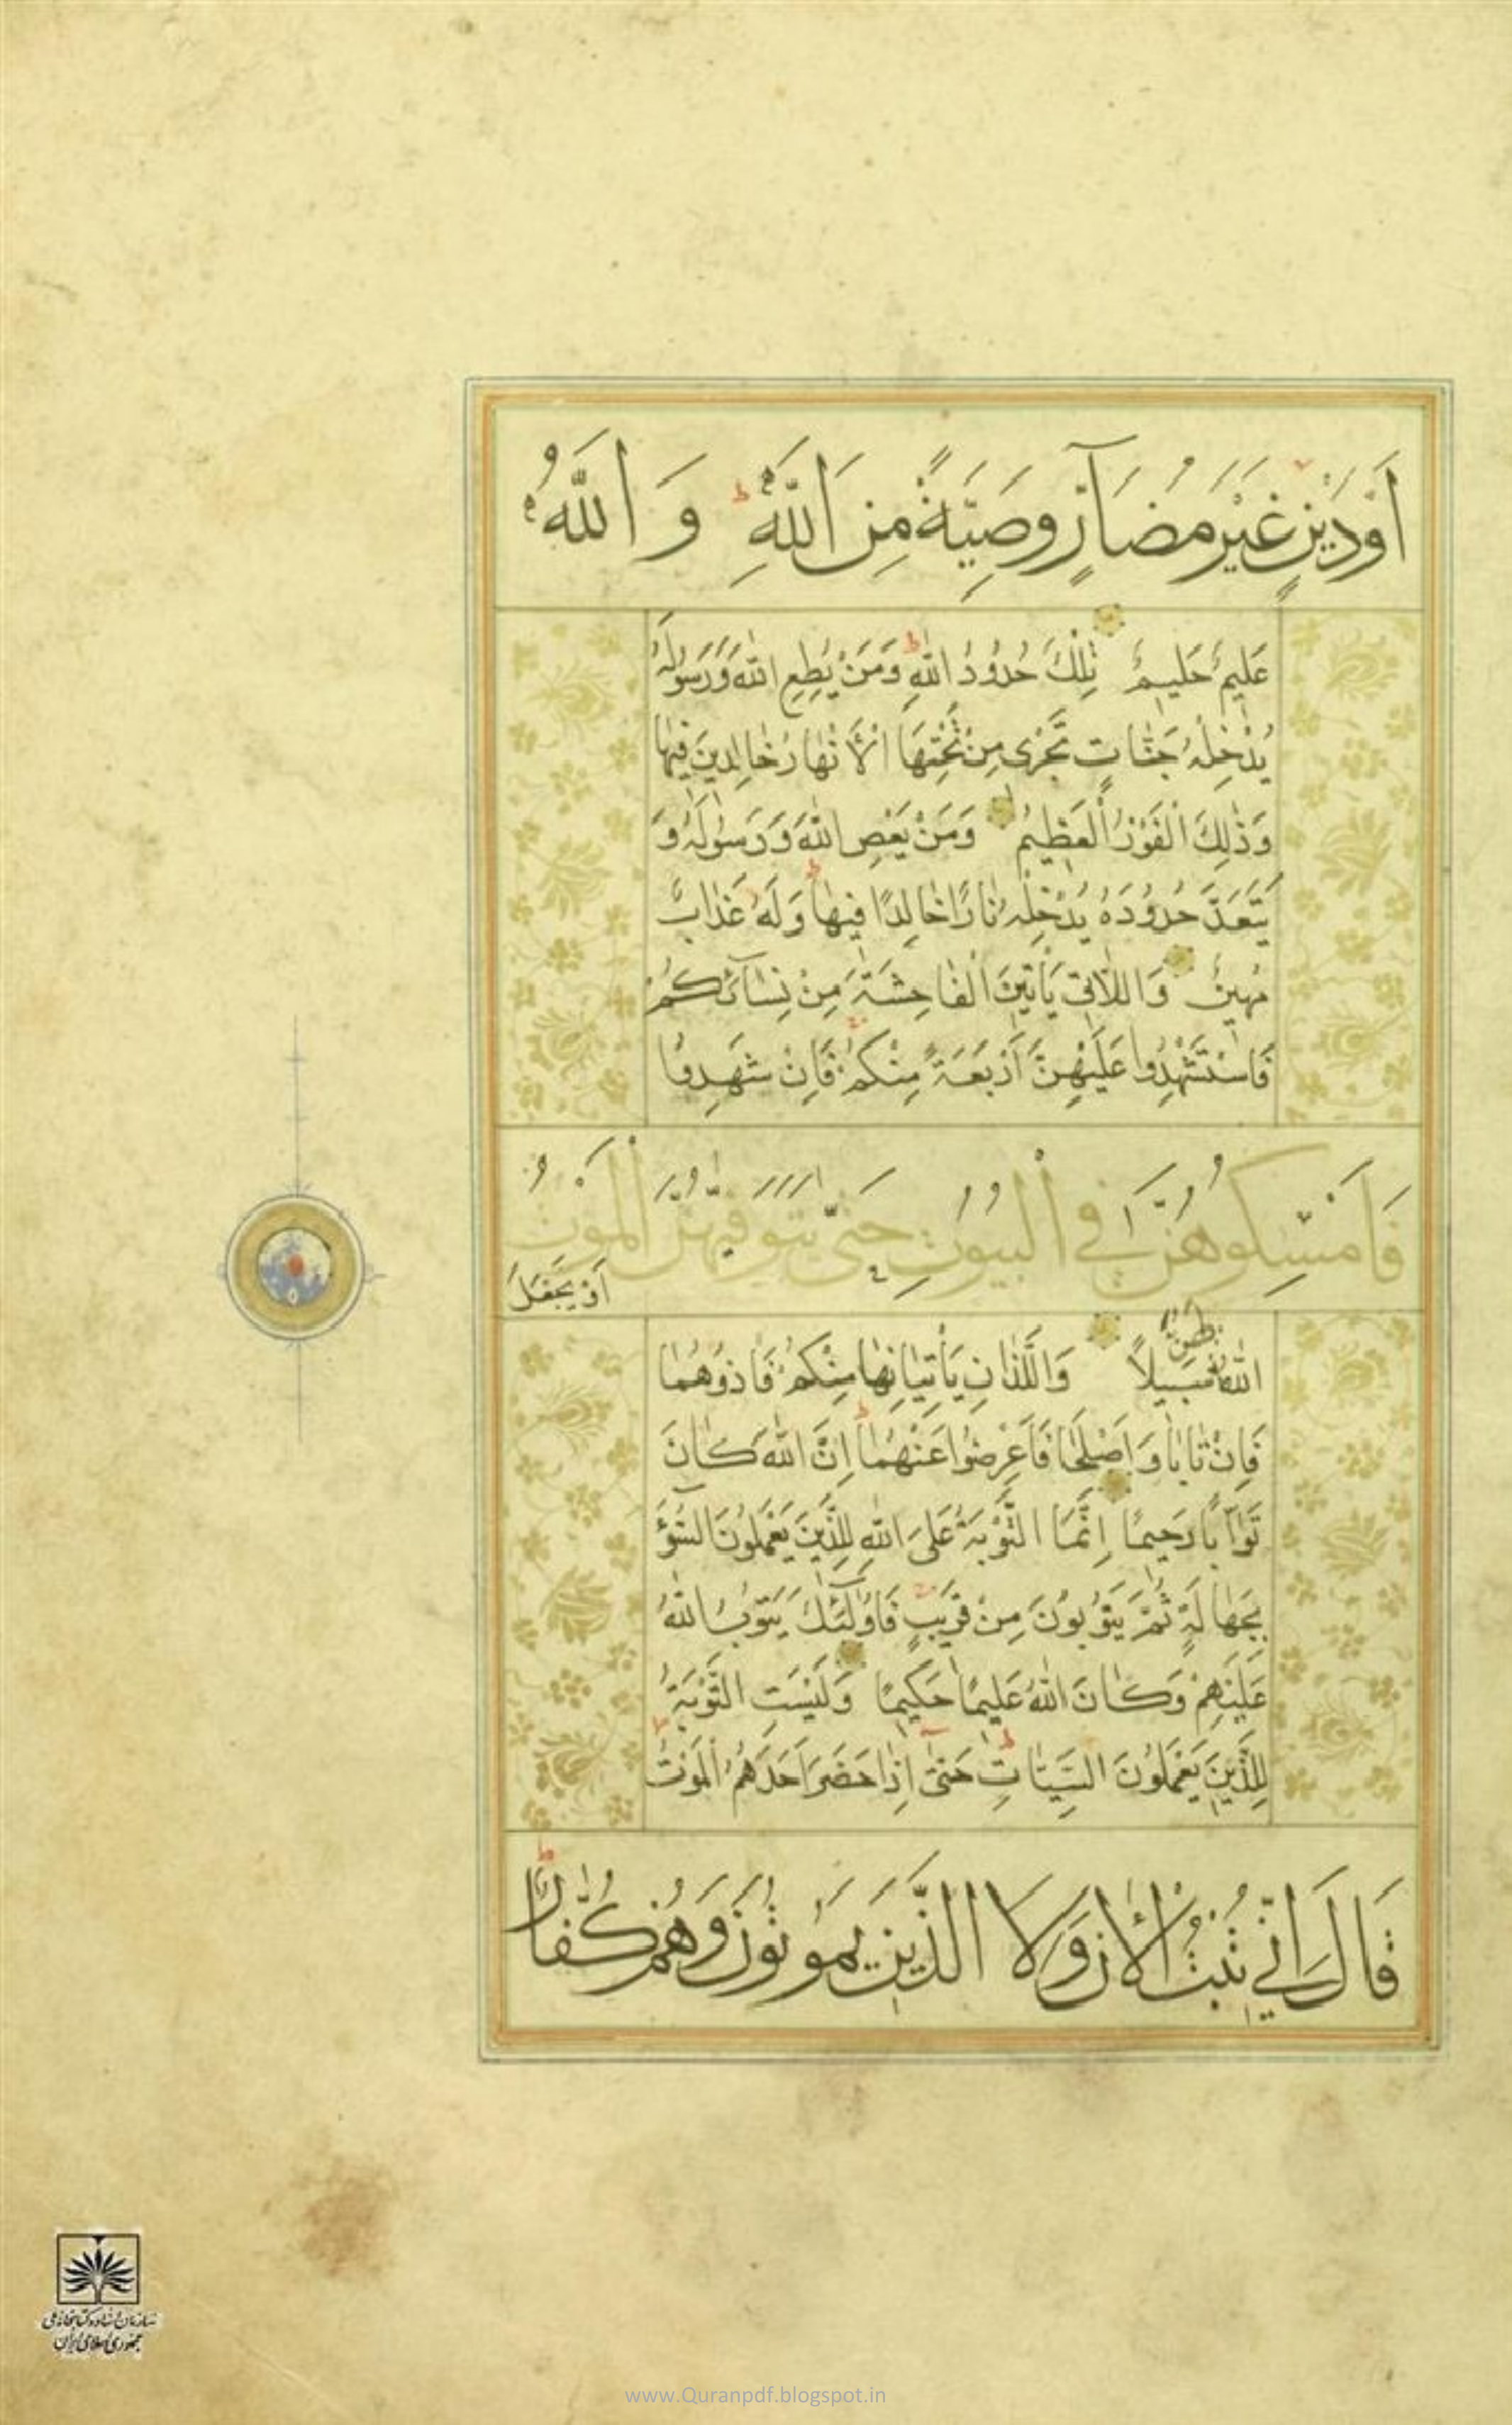 اَوْدَيْنٍ غَيْرَ مُضَآرٍّ وَصِيَّةً مِنَ اللّٰهِ وَ اللّٰهُ
عَلِيمٌ حَلِيمٌ تِلْكَ حُدُودُ اللّٰهِ وَمَنْ يُطِعِ اللّٰهَ وَرَسُولَهُ
يُدْخِلْهُ جَنّٰاتٍ تَجْرِى مِنْ تَحْتِهَا الْاَنْهٰارُ خٰالِدِينَ فِيهٰا
وَذٰلِكَ الْفَوْزُ الْعَظِيمُ وَمَنْ يَعْصِ اللّٰهَ وَرَسُولَهُ وَ
يَتَعَدَّ حُدُودَهُ يُدْخِلْهُ نٰارًا خٰالِدًا فِيهٰا وَلَهُ عَذٰابٌ
مُهِينٌ وَاللّٰاتِى يَأْتِينَ الْفٰاحِشَةَ مِنْ نِسٰآئِكُمْ
فَاسْتَشْهِدُوا عَلَيْهِنَّ اَرْبَعَةً مِنْكُمْ فَاِنْ شَهِدُوا
فَاَمْسِكُوهُنَّ فِي الْبُيُوتِ حَتّٰى يَتَوَفّٰيهُنَّ الْمَوْتُ
اَوْ يَجْعَلَ
اللّٰهُ لَهُنَّ سَبِيلًا وَالَّلذٰانِ يَأْتِيٰانِهٰا مِنْكُمْ فَاٰذُوهُمٰا
فَاِنْ تٰابٰا وَاَصْلَحٰا فَاَعْرِضُوا عَنْهُمٰا اِنَّ اللّٰهَ كٰانَ
تَوّٰابًا رَحِيمًا اِنَّمَا التَّوْبَةُ عَلَى اللّٰهِ لِلَّذِينَ يَعْمَلُونَ السُّوٓءَ
بِجَهٰالَةٍ ثُمَّ يَتُوبُونَ مِنْ قَرِيبٍ فَاُولٰٓئِكَ يَتُوبُ اللّٰهُ
عَلَيْهِمْ وَكٰانَ اللّٰهُ عَلِيمًا حَكِيمًا وَلَيْسَتِ التَّوْبَةُ
لِلَّذِينَ يَعْمَلُونَ السَّيِّئٰاتِ حَتّٰى اِذٰا حَضَرَ اَحَدَهُمُ الْمَوْتُ
قَالَ اِنِّي تُبْتُ الْاٰنَ وَلَا الَّذِينَ يَمُوتُونَ وَهُمْ كُفّٰارٌ
سازمان اسناد و کتابخانه ملی
جمهوری اسلامی ایران
www.Quranpdf.blogspot.in